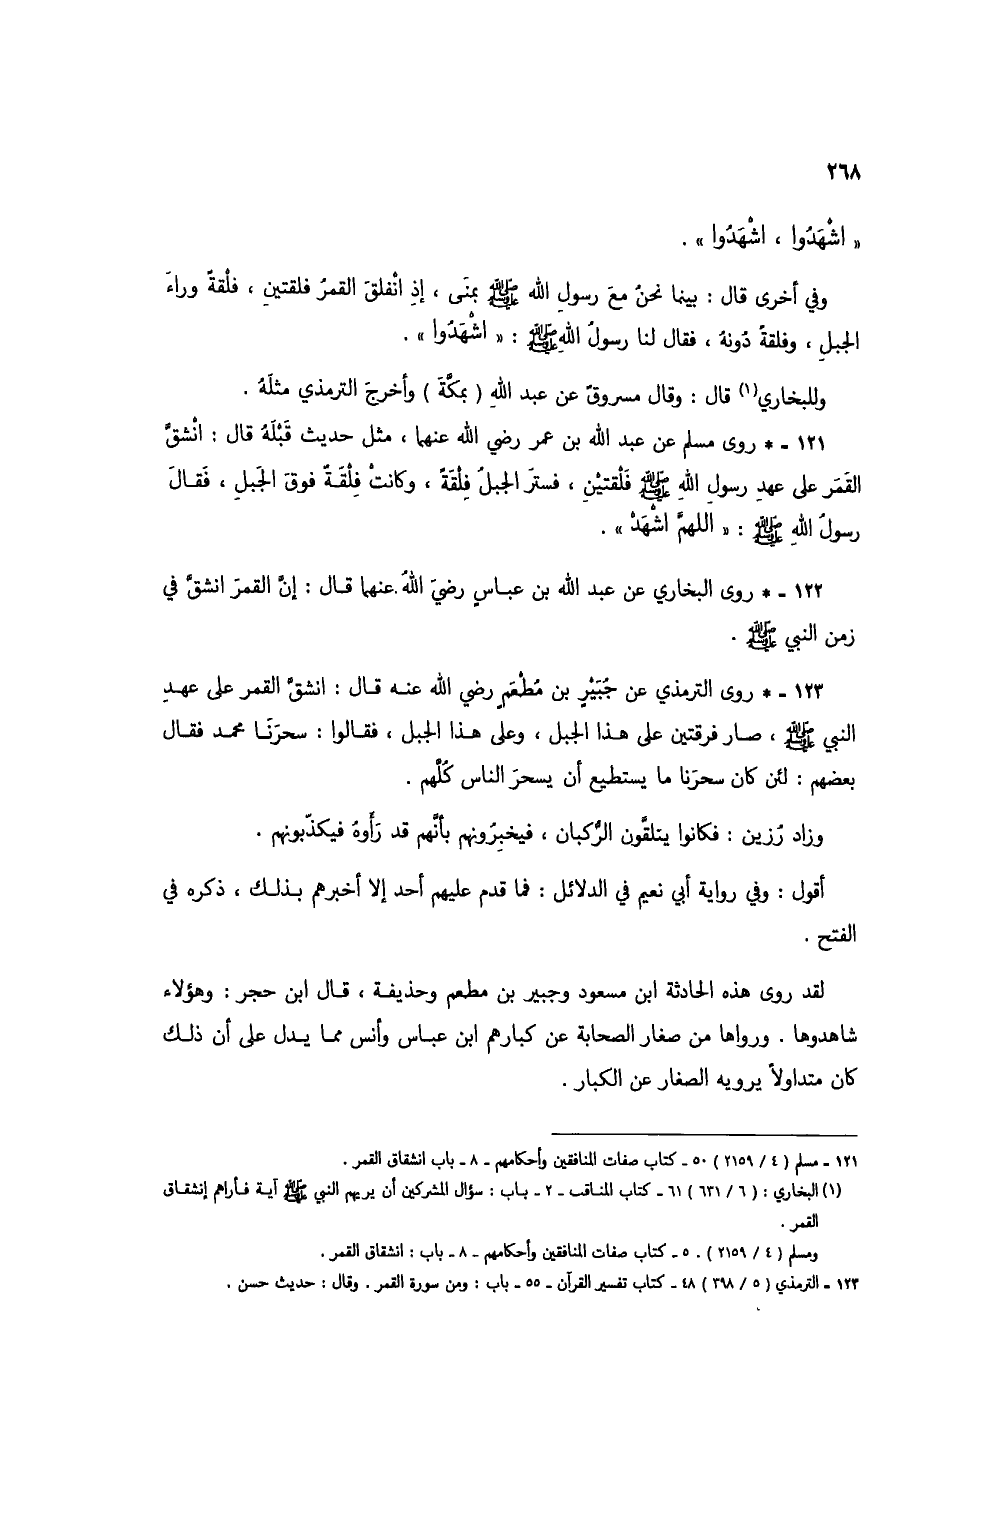 ٢٦٨
« اشْهَدُوا ، اشْهَدُوا » .
وفي أخرى قال : بينما نحنُ معَ رسولِ الله ﷺ بمنَى ، إذِ انْفلقَ القمرُ فلقتينِ ، فلْقةٌ وراءَ
الجبلِ ، وفلقةٌ دُونهُ ، فقال لنا رسولُ اللهِ ﷺ : « اشْهَدُوا » .
وللبخاري(١) قال : وقال مسروقٌ عن عبد اللهِ ( بمكَّةَ ) وأخرجَ الترمذي مثلَهُ .
١٢١ - * روى مسلم عن عبد الله بن عمر رضي الله عنهما ، مثل حديث قَبْلَهُ قال : انْشقَّ
القَمَر على عهدِ رسولِ اللهِ ﷺ فَلْقتيْنِ ، فسترَ الجبلُ فِلْقَةً ، وكانتْ فِلْقَةٌ فوقَ الجَبلِ ، فَقالَ
رسولُ اللهِ ﷺ : « اللهمَّ اشْهَدْ » .
١٢٢ - * روى البخاري عن عبد الله بن عباسٍ رضيَ اللهُ عنهما قال : إنَّ القمرَ انشقَّ في
زمن النبي ﷺ .
١٢٣ - * روى الترمذي عن جُبَيْرٍ بن مُطْعَمٍ رضي الله عنه قال : انشقَّ القمر على عهدِ
النبي ﷺ ، صار فرقتين على هذا الجبل ، وعلى هذا الجبل ، فقالوا : سحرَنَا محمد فقال
بعضهم : لئن كان سحرَنا ما يستطيع أن يسحرَ الناس كُلَّهم .
وزاد رُزين : فكانوا يتلقَّون الرُّكبان ، فيخبِرُونهم بأنَّهم قد رَأَوهُ فيكذّبونهم .
أقول : وفي رواية أبي نعيم في الدلائل : فما قدم عليهم أحد إلا أخبرهم بذلك ، ذكره في
الفتح .
لقد روى هذه الحادثة ابن مسعود وجبير بن مطعم وحذيفة ، قال ابن حجر : وهؤلاء
شاهدوها . ورواها من صغار الصحابة عن كبارهم ابن عباس وأنس مما يدل على أن ذلك
كان متداولاً يرويه الصغار عن الكبار .
١٢١ - مسلم ( ٤ / ٢١٥٩ ) ٥٠ - كتاب صفات المنافقين وأحكامهم - ٨ - باب انشقاق القمر .
(١) البخاري : ( ٦ / ٦٣١ ) ٦١ - كتاب المناقب - ٢ - باب : سؤال المشركين أن يريهم النبي ﷺ آية فأراهم إنشقاق
القمر .
ومسلم ( ٤ / ٢١٥٩ ) . ٥ - كتاب صفات المنافقين وأحكامهم - ٨ - باب : انشقاق القمر .
١٢٣ - الترمذي ( ٥ / ٣٩٨ ) ٤٨ - كتاب تفسير القرآن - ٥٥ - باب : ومن سورة القمر . وقال : حديث حسن .